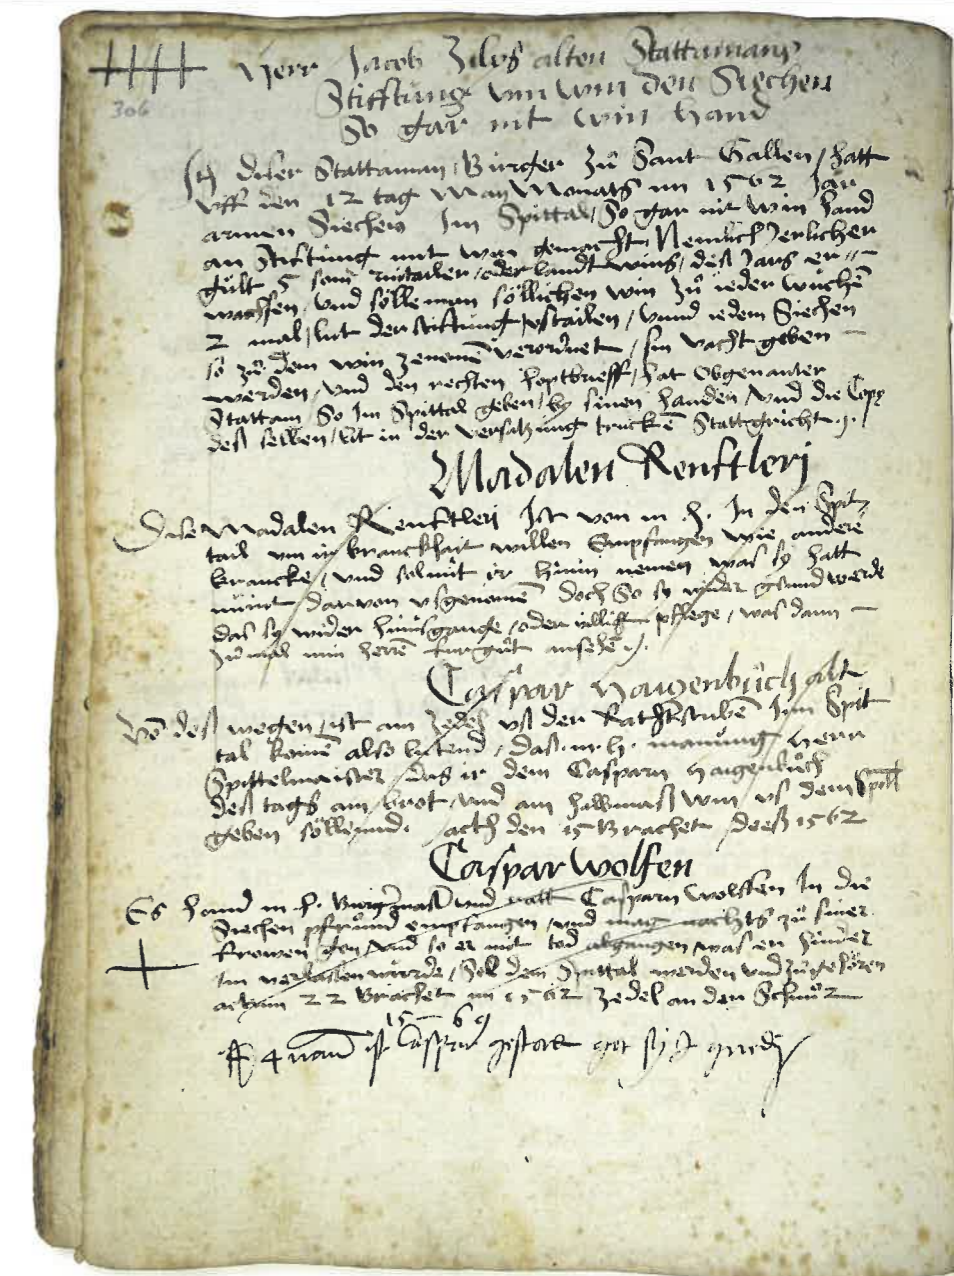 Herr Jacob Zilys alten Stattamans
306
Stifftung um win den Siechen
So gar nit win hand
diser Stattaman, Burger zu Sant Gallen, hatt
uff den 12 tag May Monats im 1562 Jar
armen Siechen Im Spittal, So gar nit win hand
an Stiftung mit win gemacht, Nemlich Jerlicher
gült 5 som, oder landtwins, deß Jars er-
wachsen, und sölle man söllichen win zu ieder wuchen
2 mal, lut der stiftung ustailen, unnd iedem Siechen
so zu dem win zenemen verordnet, sin geben
werden, und den rechten hoptbrieff, hat Obgenanter
Stattam So Im Spittal geben, by sinen handen, und die Copy
deß selben, lit in der versatzung trucken Stattgricht.
Madalen Renftleri
Dise Madalen Renftleri Ist von m h. In den Spit-
tail um ir kranckhait willen Empfangen wie andere
krancke, und sol mit ir hinin nemen was sy hatt
nünt darvon usgenomen doch So sy wider gsund werde
das sy wider hinusgange, oder pflege, was dann
zumal min herren fur gut ansehen.
Caspar Haigenbuch alt
Von deß wegen ist ain Zedel uß der Rathstuben Inn Spit
tal komen also lutend, das. m. h. manung Herr
Spittelmaister das ir dem Casparn Haigenbuch
deß tags ain brot, und ain halbmaß win us dem Spitt
geben söllennd. actum den 15 Brachet deß 1562
Caspar Wolfen
Es hand m. h. Burgermaister und ratt Casparn Wolffen In die
Siechen pfrund empfangen, und mag nachts zu siner
frowen gon, und so er mit tod abgangen was er hinder
Im verlasen wurde, Sol dem Spittal werden und zugehören
actum 22 Brachet im 1562 Zedel an der Schnur
15 69
4 ist Caspar gestorben got sy Im gnedig